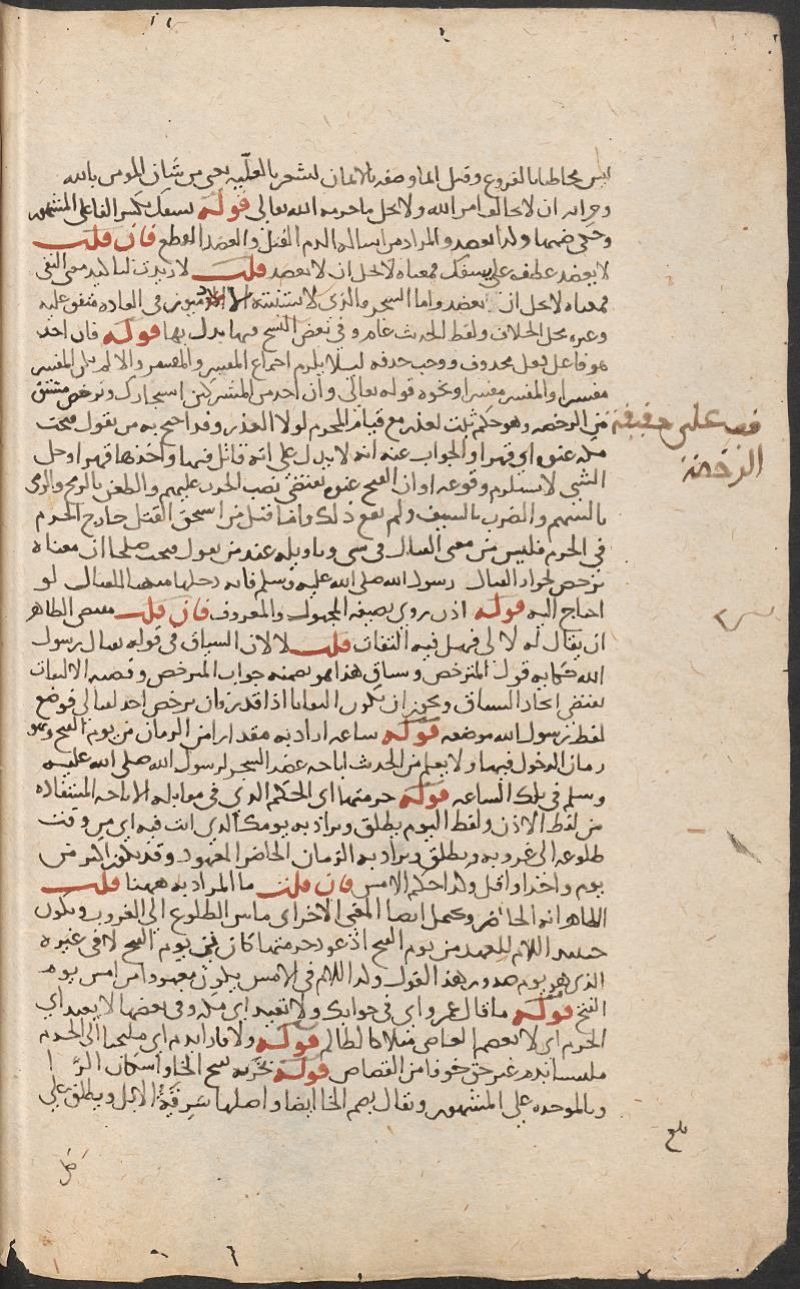 ليس مخاطبا بالفروع وقيل انما وصفه بالايمان ليشعر بالعلية يعني من شان المؤمن بالله
وجزائه ان لا يخالف امر الله ولا يحل ما حرمه الله تعالى قوله يسفك بكسر الفا على المشهور
وحكي ضمها ولا يعضد والمراد من اسالة الدم القتل والعضد القطع فان قلت
لا يعضد عطف على يسفك فمعناه لا يحل ان لا يعضد قلت لا زيدت لتاكيد معنى النفي
فمعناه لا يحل ان يعضد واما الشجر والذي لا يستنبته في العادة متفق عليه
وغيره محل الخلاف ولفظ الحديث عام وفي بعض النسخ فيها بدل بها قوله فان احد
هو فاعل فعل محذوف ووجب حذفه ليلا يلزم اجتماع المفسر والمفسر والا لم يكن المفسر
مفسرا والمفسر مفسرا ونحوه قوله تعالى وان احد من المشركين استجارك وترخص مشتق
من الرخصه وهو حكم ثبت لعذر مع قيام المحرم لولا العذر وقد احتج به من يقول فتحت
مكه عنوه اي قهرا والجواب عنه انه لا يدل على انه قاتل فيها واخذها قهرا وحل
الشي لا يستلزم وقوعه او ان الفتح عنوه يقتضي نصب الحرب عليهم والطعن بالرمح والرمي
بالسهم والضرب بالسيف ولم يقع ذلك واما قتل من استحق القتل خارج الحرم
في الحرم فليس من معنى القتال في شي وتاويله عند من يقول فتحت صلحا ان معناه
ترخص لجواز القتال رسول الله صلى الله عليه وسلم فانه دخلها متهيا للقتال لو
احتاج اليه قوله اذن روي بصيغه المجهول والمعروف فان قلت مقتضى الظاهر
ان يقال له لا لي فهل فيه التفات قلت لا لان السياق في قوله لقتال رسول
الله حكايه قول المترخص وسياق هذا هو تضمنه جواب المترخص وقضيه الالتفات
تقتضي اتحاد السياق ويجوز ان يكون التفاتا اذا قدر فان ترخص احد لقتالي فوضع
لفظ رسول الله موضعه قوله ساعه اراد به مقدارا من الزمان من يوم الفتح وهو
زمان الدخول فيها ولا يعلم من الحديث اباحه عضد الشجر لرسول الله صلى الله عليه
وسلم في تلك الساعه قوله حرمتها اي الحكم الذي في مقابله الاباحه المستفاده
من لفظ الاذن ولفظ اليوم يطلق ويراد به يومك الذي انت فيه اي من وقت
طلوعه الى غروبه ويطلق ويراد به الزمان الحاضر المعهود وقد يكون اكثر من
يوم واحد او اقل ولذا حكم الامس فان قلت ما المراد به ههنا قلت
الظاهر انه الحاضر ويحتمل ايضا المعنى الاخر اي ما بين الطلوع الى الغروب ويكون
حينئذ اللام للعهد من يوم الفتح اذ عود حرمتها كان في يوم الفتح لا في غيره
الذي هو يوم صدور هذا القول ولذا اللام في الامس يكون معهودا من امس يوم
الفتح قوله ما قال عمرو اي في جوابك ولا تعيذ اي مكه وفي بعضها لا يعيذ اي
الحرم اي لا يعصم العاصي مثلا كالظالم قوله ولا فارا بدم اي ملتجيا الى الحرم
ملتبسا بدم غير حق خوفا من القصاص قوله بخربه بفتح الخا واسكان الرا
وبالموحده على المشهور ويقال بضم الخا ايضا واصلها سرقة الابل ويطلق على
قف على حقيقة
الرخصة
بلغ